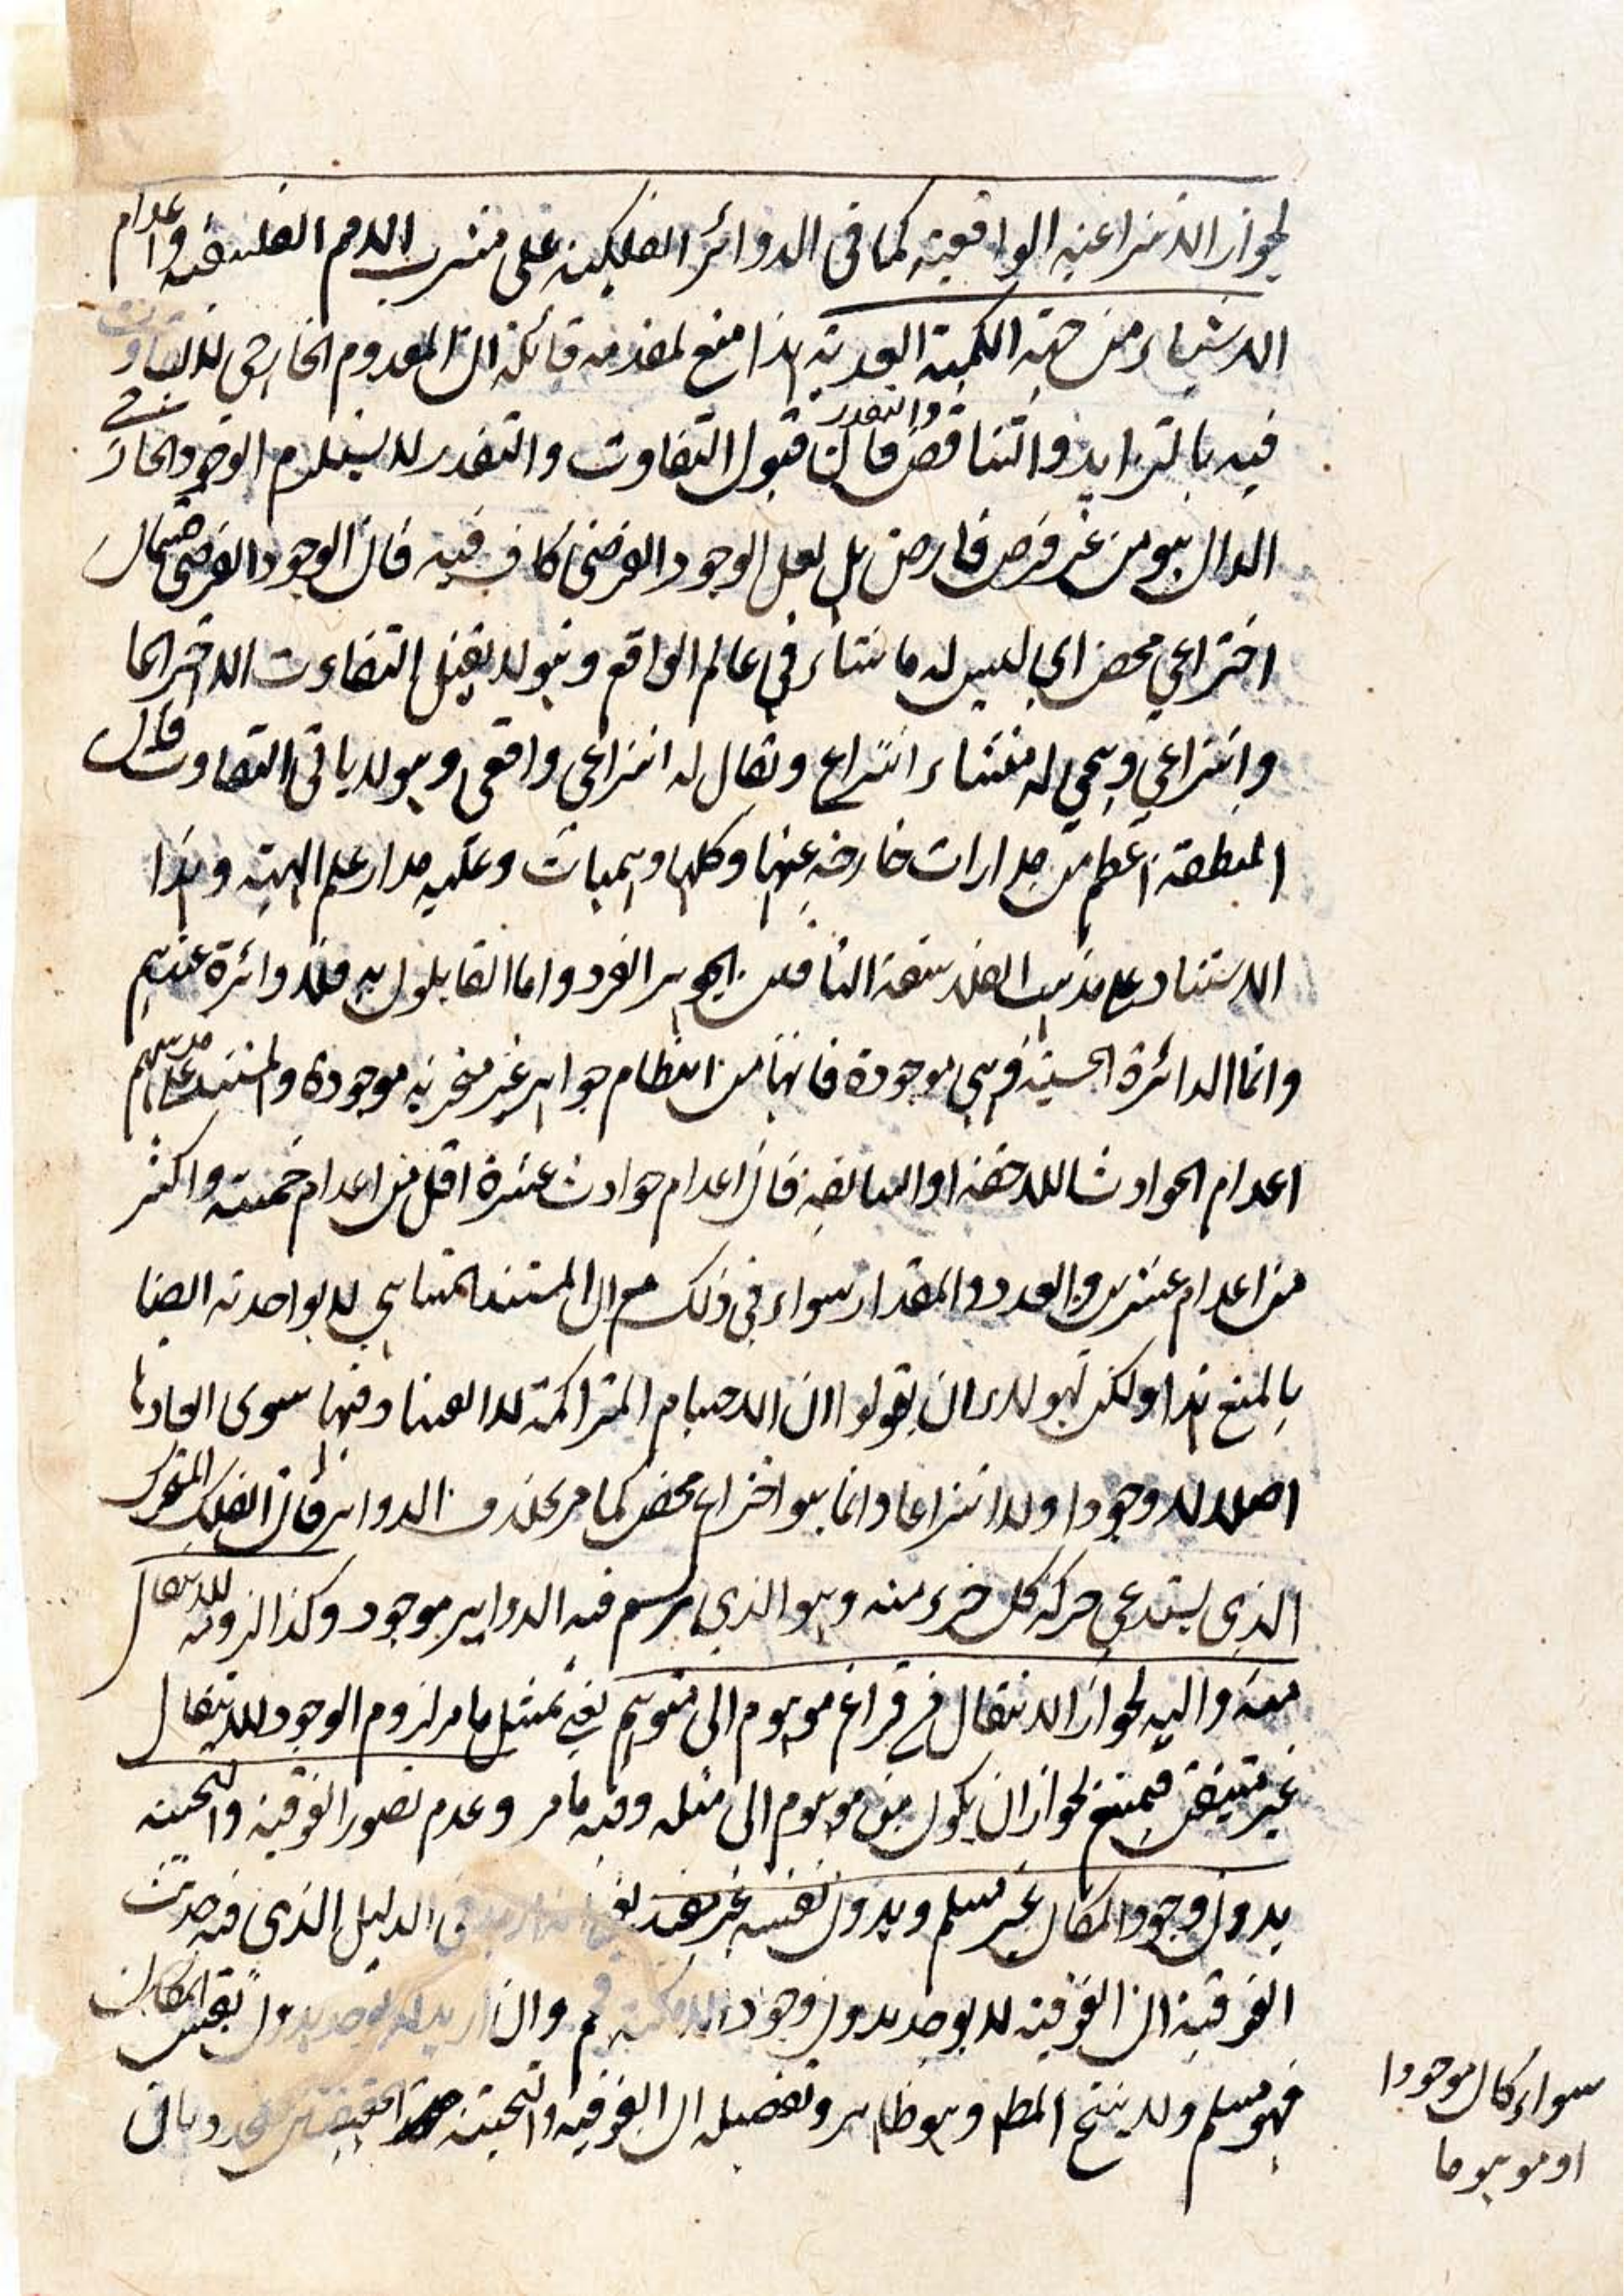 لجواز الانتزاعية الواقعية كما في الدوائر الفلكية على مشرب الامم الفلسفية واعدام
الاشياء من جهة الكمية العددية هذا منع لمقدمة قائلة ان المعدوم الخارجي لا تفاوت
فيه بالتزايد والتناقص والتقدر فان قبول التفاوت والتقدر لا يستلزم الوجود الخارجي
الدال هو من غير فرض فارض بل لعل الوجود الفرضي كاف فيه فان الوجود الفرضي قسمان
اختراعي محض اي ليس له منشاء في عالم الواقع وهو لا يقبل التفاوت الا اختراعا
وانتزاعي وهي له منشاء انتزاع ويقال له انتزاعي واقعي وهو لا يابى التفاوت فان
المنطقة اعظم من مدارات خارجة عنها وكلها وهميات وعليه مدار علم الهيئة وهذا
الاستناد على مذهب الفلاسفة النافين الجوهر الفرد واما القايلون به فلا دوائرة عندهم
وانما الدائرة الحسية فهي موجودة فانها من انتظام جواهر غير متجزية موجودة والمستند على مذهبهم
اعدام الحوادث اللاحقة او السابقة فان اعدام حوادث عشرة اقل من اعدام خمسة واكثر
من اعدام عشرين والعدد والمقدار سواء في ذلك مع ان المستند المتناهي لا يواخذ به ايضا
بالمنع هذا ولكن لهولاء ان يقولوا ان الاجسام المتراكمة لا ابعاد فيها سوى
اصلا لا وجودا ولا انتزاعا وانما هو اختراع محض كما مر بخلاف الدواير فان الفلك المتحرك
الذي يستدعي حركة كل جزء منه وهو الذي يرسم فيه الدواير موجود وكذا لزومه للانتقال
منه واليه لجواز الانتقال في فراغ موهوم الى متوهم يعني بمثل ما مر لزوم الوجود للانتقال
غير متيقن فيمنع لجواز ان يكون من موهوم الى مثله وفيه ما مر وعدم تصور الفوقية والتحتية
بدون وجود المكان غير مسلم وبدون نفسه غير مفيد يعني انه اريد في الدليل الذي فيه حديث
الفوقية ان الفوقية لا يوجد بدون وجود الامكنة فم وان اريد لا يوجد بدون نفس المكان
فهو مسلم ولا ينتج المطم وهو ظاهر وتفصيله ان الفوقية والتحتية
سواء كان موجودا
او موهوما